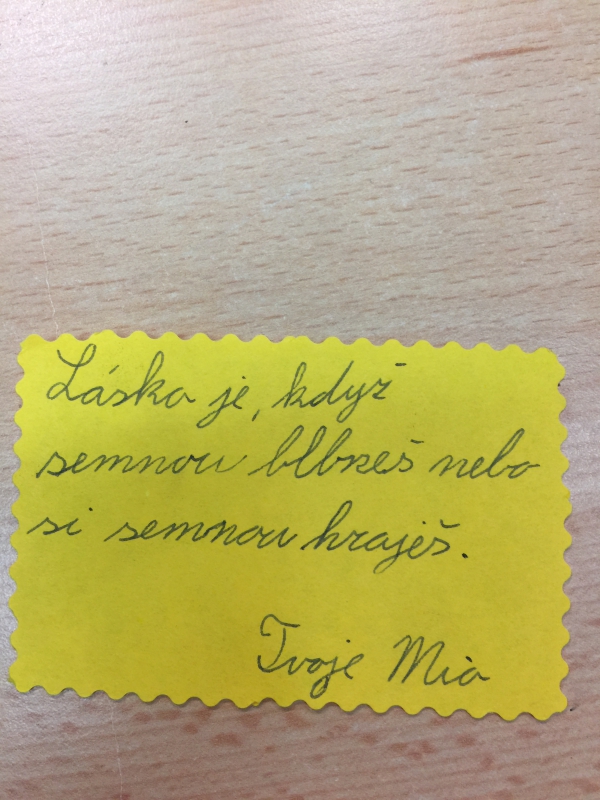 Láska je, když
semnou blbneš nebo
si semnou hraješ.
Tvoje Mia